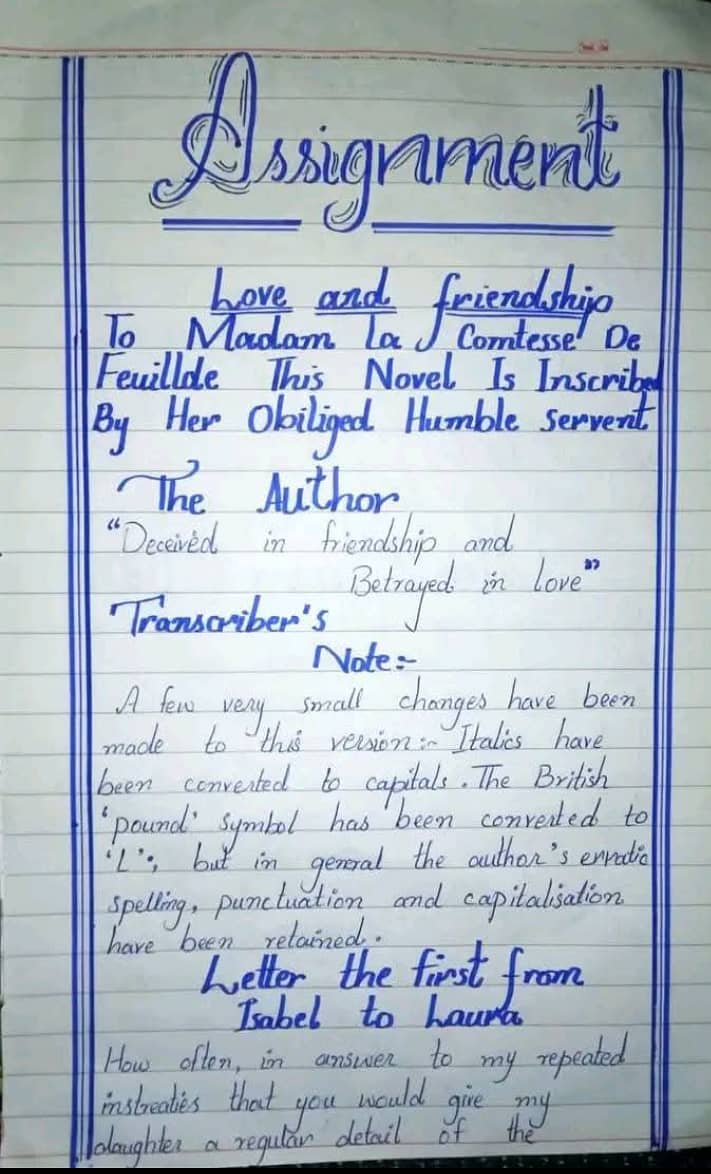 Assignment
Love and friendship
To Madam la Comtesse De
Feuillde This Novel Is Inscribed
By Her Obiliged Humble servent
The Author
"Deceivéd in friendship and
Betrayed in love"
Transcriber's
Note:-
A few very small changes have been
made to this version:- Italics have
been converted to capitals. The British
'pound' symbol has been converted to
'L'; but in general the author's erratic
spelling, punctuation and capitalisation
have been retained.
Letter the first from
Isabel to Laura
How often, in answer to my repeated
instreaties that you would give my
daughter a regular detail of the